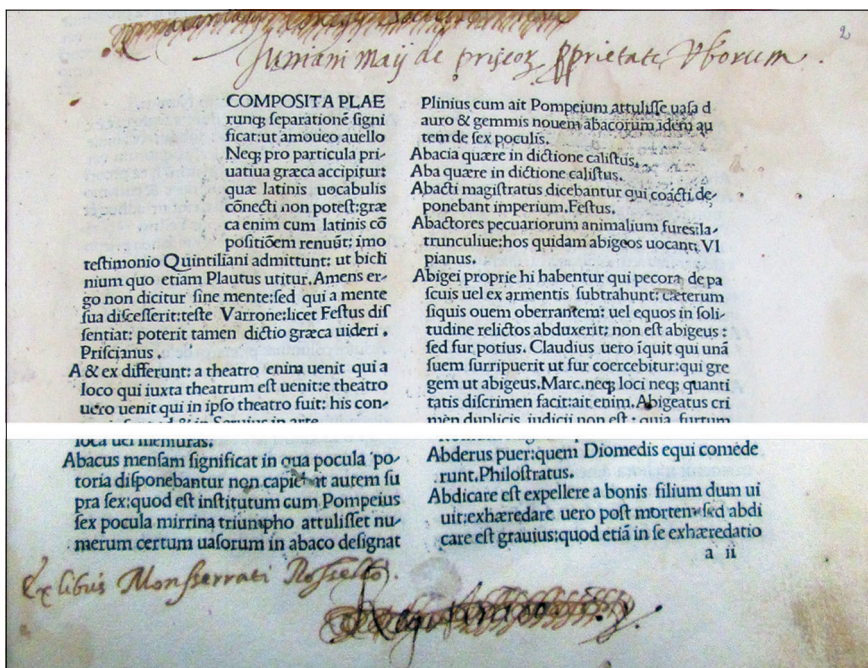 2
Iuniani Maij de priscoꝝ ꝓprietate Vborum.
COMPOSITA PLAE
runqꝫ separationē signi
ficat:ut amoueo auello
Neqꝫ pro particula pri-
uatiua græca accipitur:
quæ latinis uocabulis
cōnecti non potest:græ
ca enim cum latinis cō
positiōem renuūt: imo
testimonio Quintiliani admittunt: ut bicli
nium quo etiam Plautus utitur. Amens er-
go non dicitur sine mente:sed qui a mente
sua discesserit:teste Varrone:licet Festus dis
sentiat: poterit tamen dictio græca uideri.
Priscianus.
A & ex differunt: a theatro enim uenit qui a
loco qui iuxta theatrum est uenit:e theatro
uero uenit qui in ipso theatro fuit: his con-
& in Seruius in arte
loca uel mensuras.
Abacus mensam significat in qua pocula po-
toria disponebantur non capiebat autem su
pra sex:quod est institutum cum Pompeius
sex pocula mirrina triumpho attulisset nu-
merum certum uasorum in abaco designat
Plinius cum ait Pompeium attulisse uasa d
auro & gemmis nouem abacorum idem au
tem de sex poculis.
Abacia quære in dictione calistus.
Aba quære in dictione calistus.
Abacti magistratus dicebantur qui coacti de-
ponebant imperium. Festus.
Abactores pecuariorum animalium fures:la-
trunculiue:hos quidam abigeos uocant: Vl
pianus.
Abigei proprie hi habentur qui pecora de pa
scuis uel ex armentis subtrahunt: cæterum
siquis ouem oberrantem: uel equos in soli-
tudine relictos abduxerit: non est abigeus:
sed fur potius. Claudius uero īquit qui unā
suem surripuerit ut fur coercebitur:qui gre
gem ut abigeus. Marc.neqꝫ loci neqꝫ quanti
tatis discrimen facit:ait enim. Abigeatus cri
mēn duplicis iudicii non est: quia furtum
Abderus puer:quem Diomedis equi comede
runt. Philostratus.
Abdicare est expellere a bonis filium dum ui
uit:exhæredare uero post mortem sed abdi
care est grauius:quod etiā in se exhæredatio
a ii
Ex libris Monserrati Rosselló.